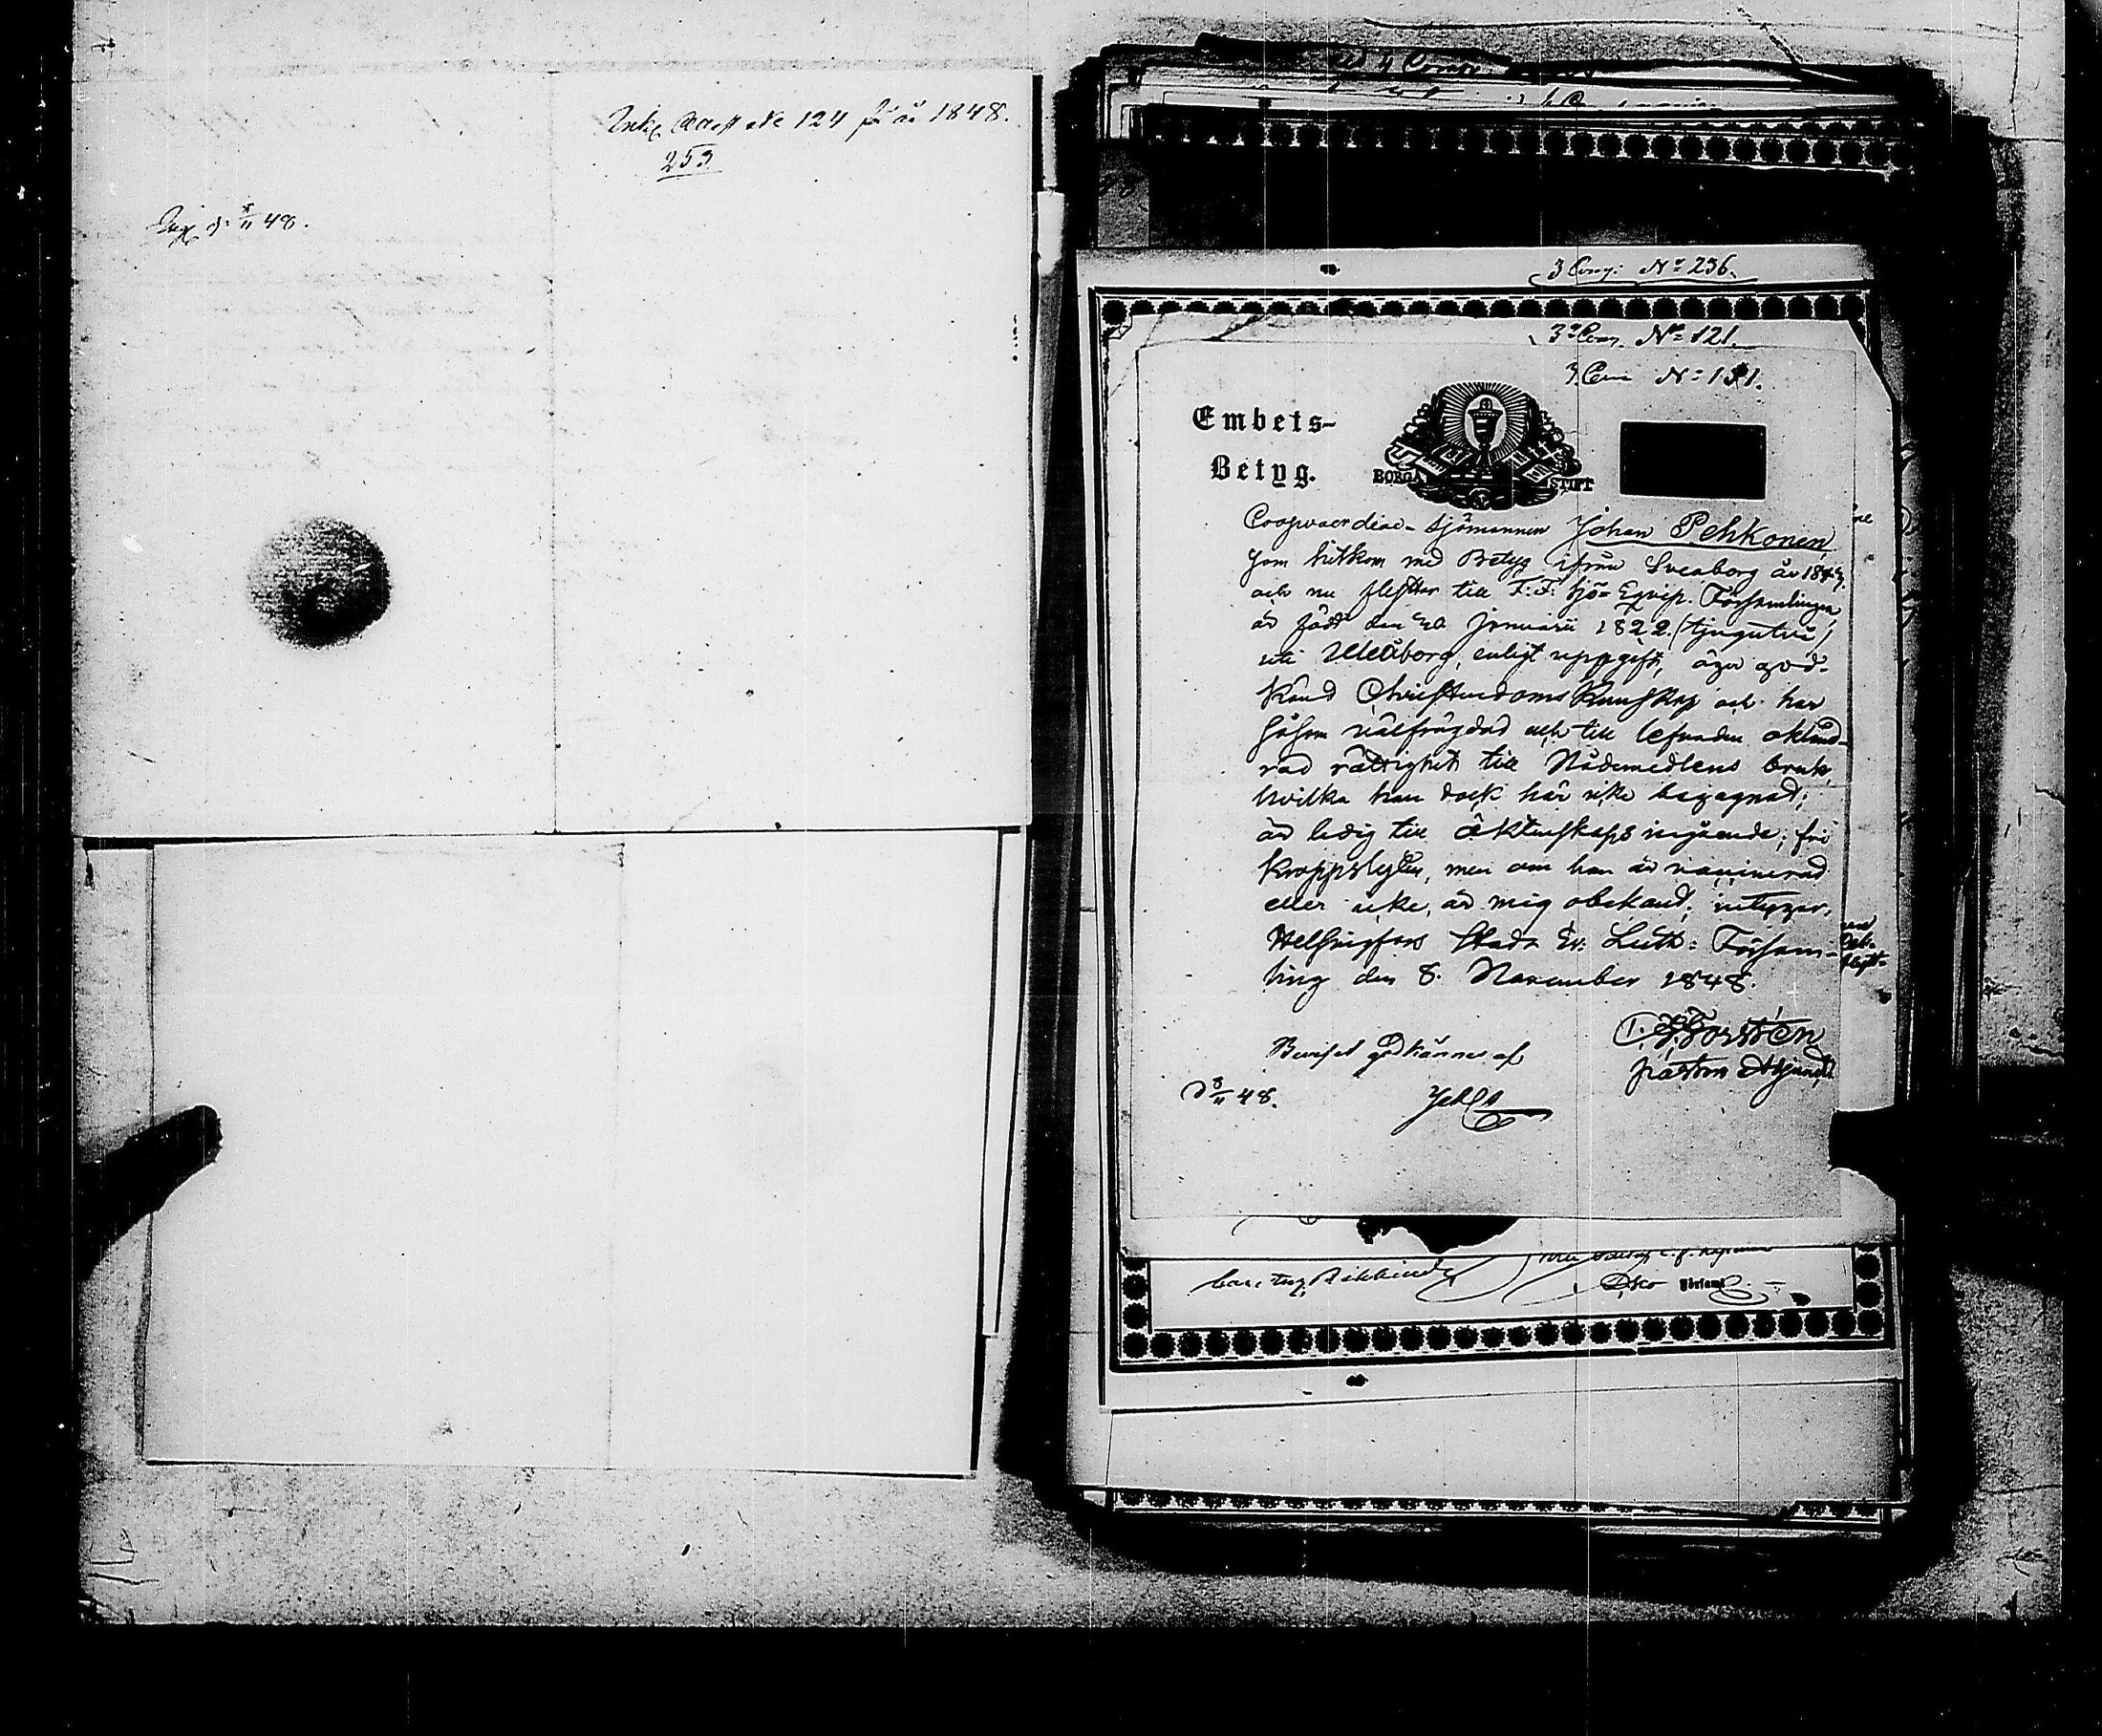 124 för år 1848.
253
d. 8/11 48.
3 Comp: No 236.
3e Com. No 121.
3 Com No 131.
Embets-
Betyg.
BORGA STIFT
Coopvaerdiae-Sjömannen Johan Pehkonen,
som hitkom med Betyg ifrån Sveaborg år 184
och nu flyttar till F: F: Sjö-Eqvip. Församlingen
är född den 20 Januarii 1822. (tjugutvå)
uti Uleåborg, enligt uppgift, äger god-
känd Christendoms Kunskap och har
såsom välfrägdad och till lefnaden okland-
rad rättighet till Nådemedlens bruk,
hvilka han dock här icke begagnad;
är ledig till äktenskaps ingående; fri
kroppslyten, men om han är vaccinerad
eller icke, är mig obekand; intygar,
Helsingfors Stads Ev. Luth: Försam-
ling den 8. November 1848.
Forstén
Pastors Adjunct
Beviset godkännes af
d 8/11 48.